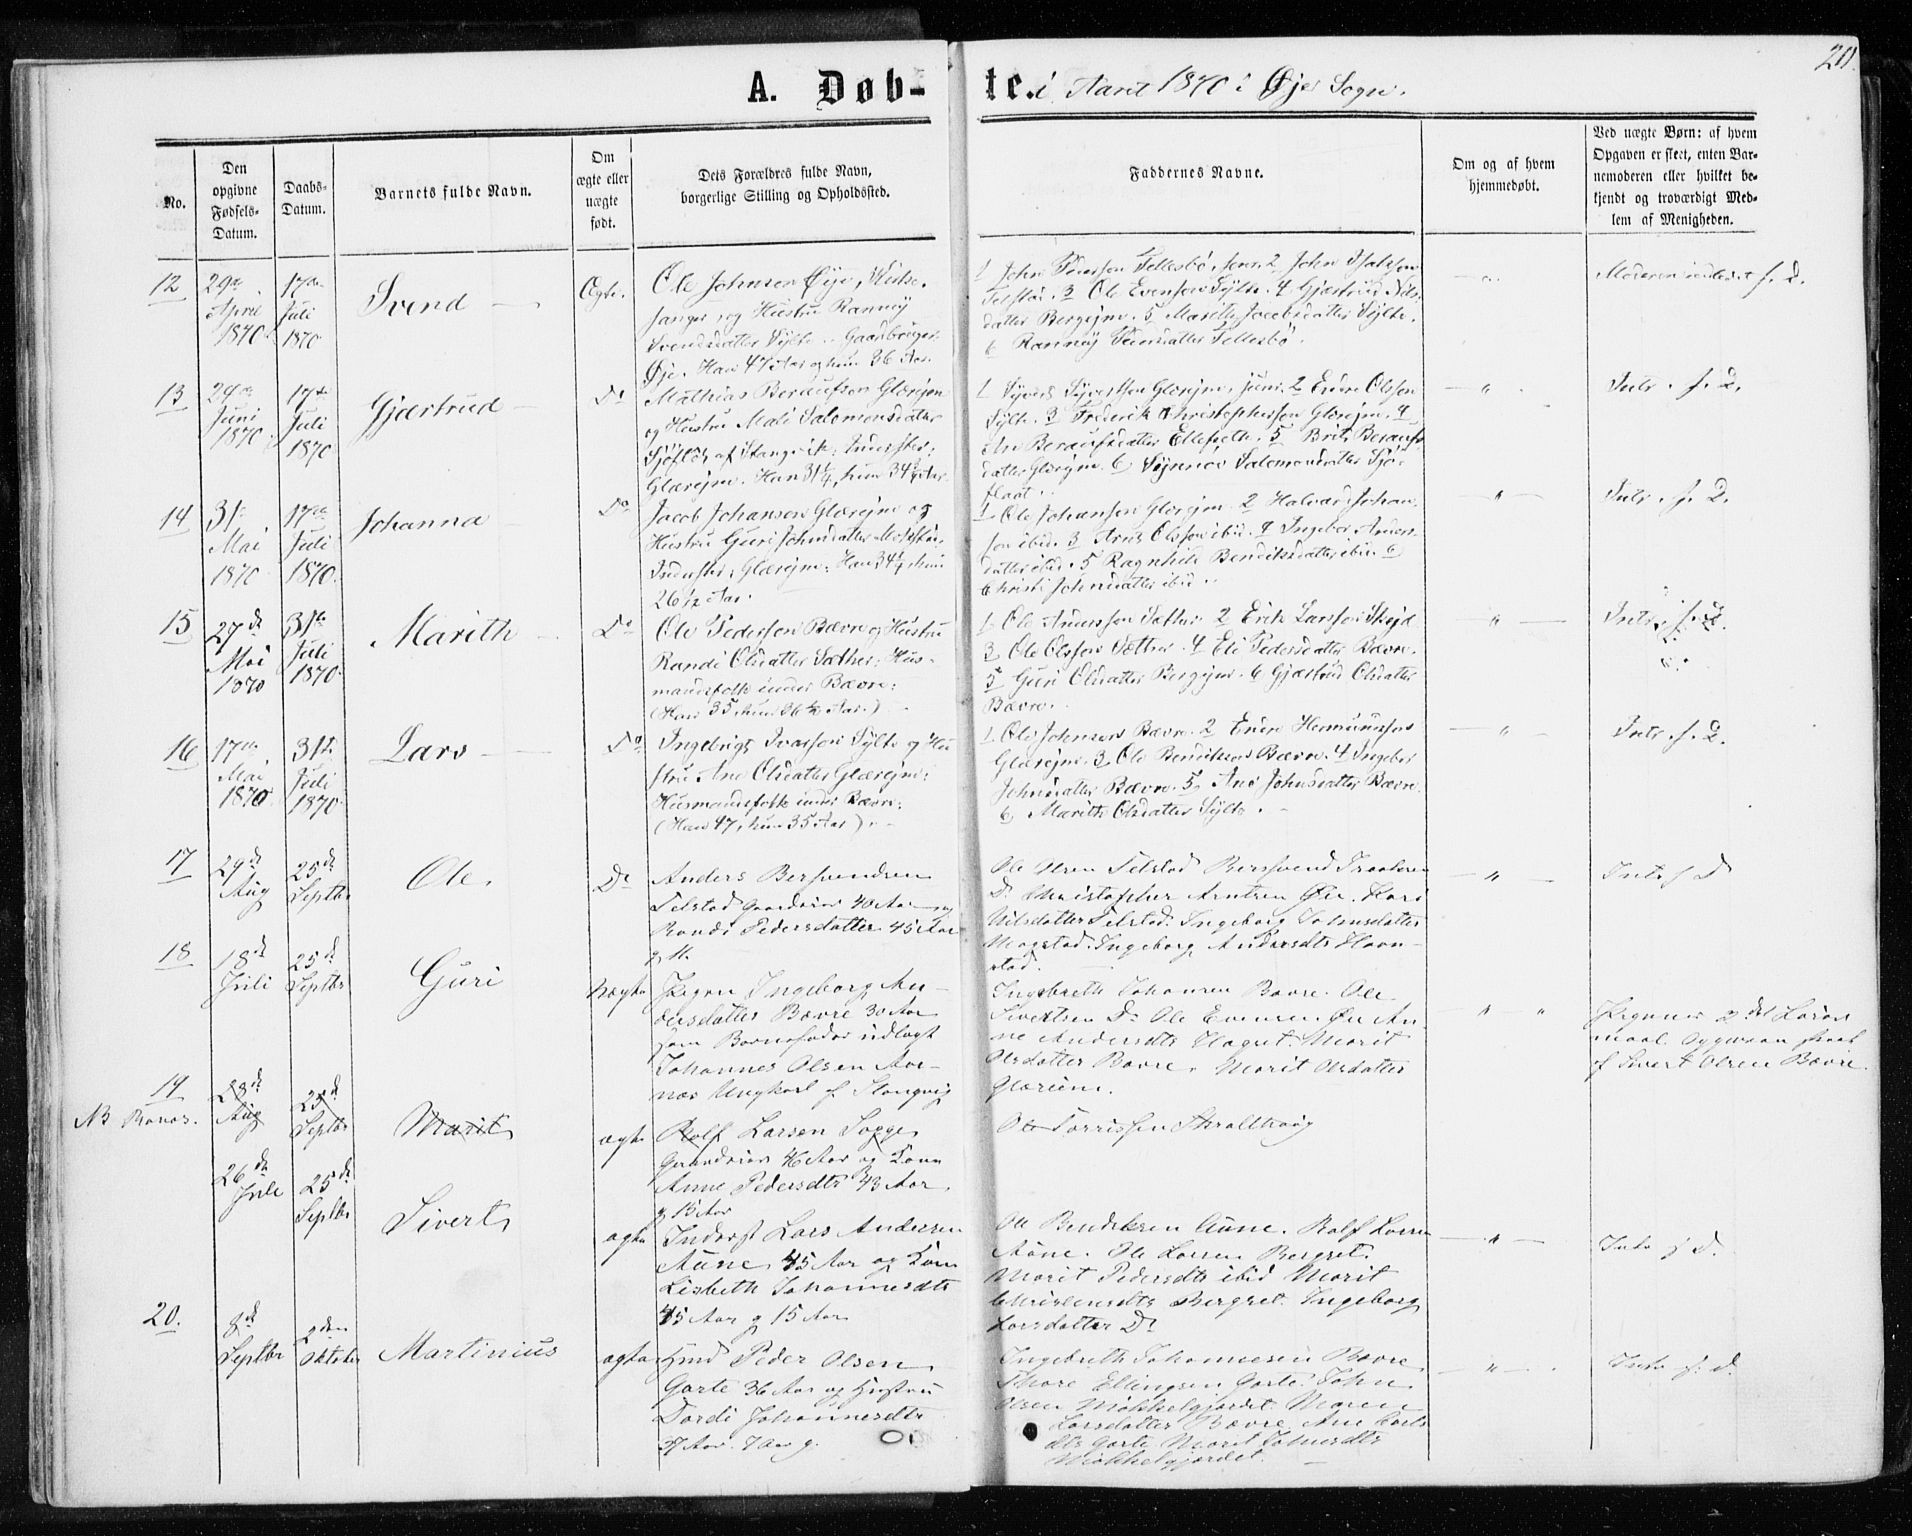 20.
A. Døbte. i Aaret 1870 i Øje Sogn.
No.
Den
opgivne
Fødsels-
Datum.
Daabs-
Datum.
Barnets fulde Navn.
Om
ægte eller
uægte
født.
Dets Forældres fulde Navn,
borgerlige Stilling og Opholdssted.
Faddernes Navne.
Om og af hvem
hjemmedøbt.
Ved uægte Børn: af hvem
Opgaven er skeet, enten Bar-
nemoderen eller hvilket be-
kjendt og troværdigt Med-
lem af Menigheden.
12
29de
April
1870
17de
Juli
1870
Svend
Ægte.
Ole Johnsen Øye, Kirke-
sanger, og Hustru Rannøy
Svendsdatter Sylte. Gaardbruger
Øje. Han 47 Aar og hun 36 Aar.
1 John Sellesbø, senr. 2 John
Telstøe. 3 Ole Evensen Sylte. 4 Gjærtrud Nils-
datter Bergejm. 5 Marith Jacobsdatter Sylte.
6 Rannøy datter Sellesbø.
Moderen f. D.
13
29de
Juni
1870
17de
Juli
1870
Gjærtrud
Do
Mathias Glærejm
og Hustru Mali Salomonsdatter
Sjøflot af Stangvik: Inderster:
Glærejm. Han 31¼, hun 34½ Aar.
1 Syvert Syvertsen Glærejm, junr. 2 Endre Olssen
Sylte. 3 Frederik Christophersen Glærejm. 4
An Ellefsæth. 5 Brit
datter Glærejm. 6 Synnøv Salomonsdatter Sjø-
flaat.
" Intr. f. D.
14
31te
Mai
1870
17de
Juli
1870.
Johanna
Do
Jacob Johansen Glærejm og
Hustru Guri Johnsdatter
Inderster: Glærejm: Han 34¼, hun
26½ Aar.
1 Ole Johansen Glærejm 2 Halvard Johan-
sen ibid. 3 Arnt Olssen ibid. 4 Ingebor Anders-
datter ibid. 5 Ragnhild Bendiksdatter ibid. 6
Christi Johnsdatter ibid.
" Intr. f. D.
15
27de
Mai
1870
31te
Juli
1870.
Marith
Do
Ole Pedersen Bævre og Hustru
Randi Olsdatter Sæther: Hus-
mandsfolk under Bævre:
(Han 35, hun 36½ Aar.)
1 Ole Anderssen Sæther 2 Erik Larssen
3 Ole Olssen Sæther. 4 Eli Pedersdatter Bævre.
5 Guri Olsdatter Bergejm. 6 Gjærtrud Olsdatter
Bævre.
" Intr. f. D.
16
17de
Mai
1870
31te
Juli
1870
Lars
Do
Ingebrigt Ivarssen Sylte og Hu-
stru Ane Olsdatter Glærejm:
Husmandsfolk under Bævre:
(Han 47, hun 35 Aar)
1 Ole Johnsen Bævre. 2 Endre
Glærejm. 3 Ole Bendiksen Bævre. 4 Ingebor
Johnsdatter Bævre. 5 Ane Johnsdatter Bævre
6 Marith Olsdatter Sylte.
" Intr. f. D.
17
29de
Aug
25de
Septbr
Ole.
Do
Anders Bersvendsen
Telstad Gaardbrur 40 Aar og
Randi Pedersdatter 45 Aar
Ole Olsen Telstad Bersvend
Do Christofcher Arntsen Øie. Kari
Nilsdatter Telstad. Ingeborg Johnsdatter
Mogstad. Ingeborg Andersdtr Havn-
stad.
" Intr f D
18
18de
Juli
25de
Septbr
Guri
uægte
Pigen Ingeborg An-
dersdatter Bævre 30 Aar
som Barnefader udlagt
Johannes Olsen Aar-
næs Ungkarl f. Stangvig
Ingebreth Johansen Bævre. Ole
Sivertsen Do Ole Evensen Øie An-
ne Andersdtr Marit
Olsdatter Bævre. Marit Olsdatter
Glæriem.
" "
Pigens 2det Leier-
maal. Opgaven skeet
af Sivert Olsen Bævre.
19
NB
28de
Aug
25de
Septbr
Marit
ægte
Rolf Larsen Sogge
Gaardbrur 46 Aar og Kone
Anne Pedersdtr 43 Aar
g 13 Aar
Ole Torrissen
26de
Juli
25de
Septbr
Sivert
ægte
Inderst Lars Andersen
Aune 45 Aar og Kone
Lisbeth Johannesdtr
45 Aar g 15 Aar
Ole Bendiksen Aune. Rolf Larsen
Aune. Ole Larsen Bergset.
Marit Pedersdtr ibid Marit
Christensdtr Bergset. Ingeborg
Larsdatter Do
" Intr f D.
20.
8de
Septbr
2den
Oktober
Martinius
ægte
Hmd Peder Olsen
Garte 36 Aar og Hustru
Dordi Johannesdtr
37 Aar. 7 Aar g.
Ingebreth Johannesen Bævre
Thore Ellingsen Garte. John
Olsen Mikkelgjordet. Maren
Larsdatter Bævre. Ane
dtr Garte Marit Johnsdtr
Mikkelgjordet.
" Intr f. D.